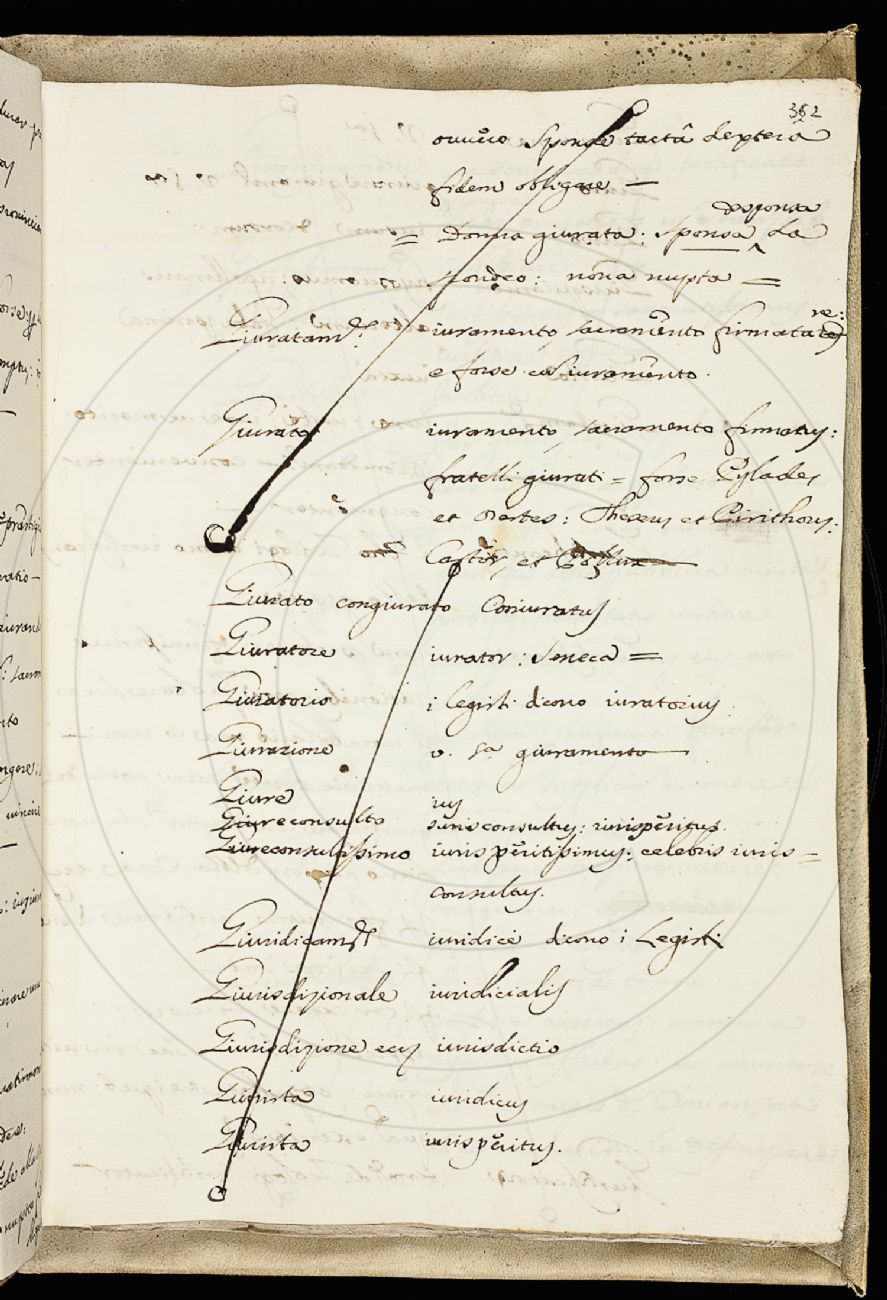 362
ouuero sponte tactâ dexterâ
fidem obligare —
desponsa
= Donna giurata: sponsa da
spondeo: non̄a nupta =
re:
Giuratam.te iuramento, sacramento firmata
e forse cū iuramento.
Giurato iuramento, sacramento firmatus:
fratelli giurati = forse Pylades
et Orestes: Theseus et Pirithous:
Castor, et Pollux
Giurato congiurato Coniuratus
Giuratore iurator: Seneca =
Giuratorio i legisti dicono iuratorius
Giurazione v. sa. giuramento —
Giure ius
Giureconsulto iurisconsultus: iurisperitus.
Giureconsultissimo iuris peritissimus: celebris iuris=
consultus.
Giuridicam.te iuridicè dicono i Legisti
Giurisdizionale iuridicialis
Giurisdizione ecc iurisdictio
Giurista iuridicus
Giurista iuris peritus.